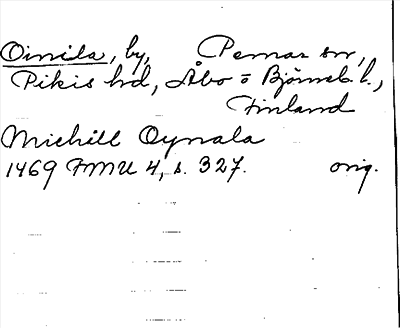 Oinila, by, Pemar sn,
Pikis hd, Åbo o Björneb. l.,
Finland
Michill Oynala
1469 FMU 4, s. 327. orig.